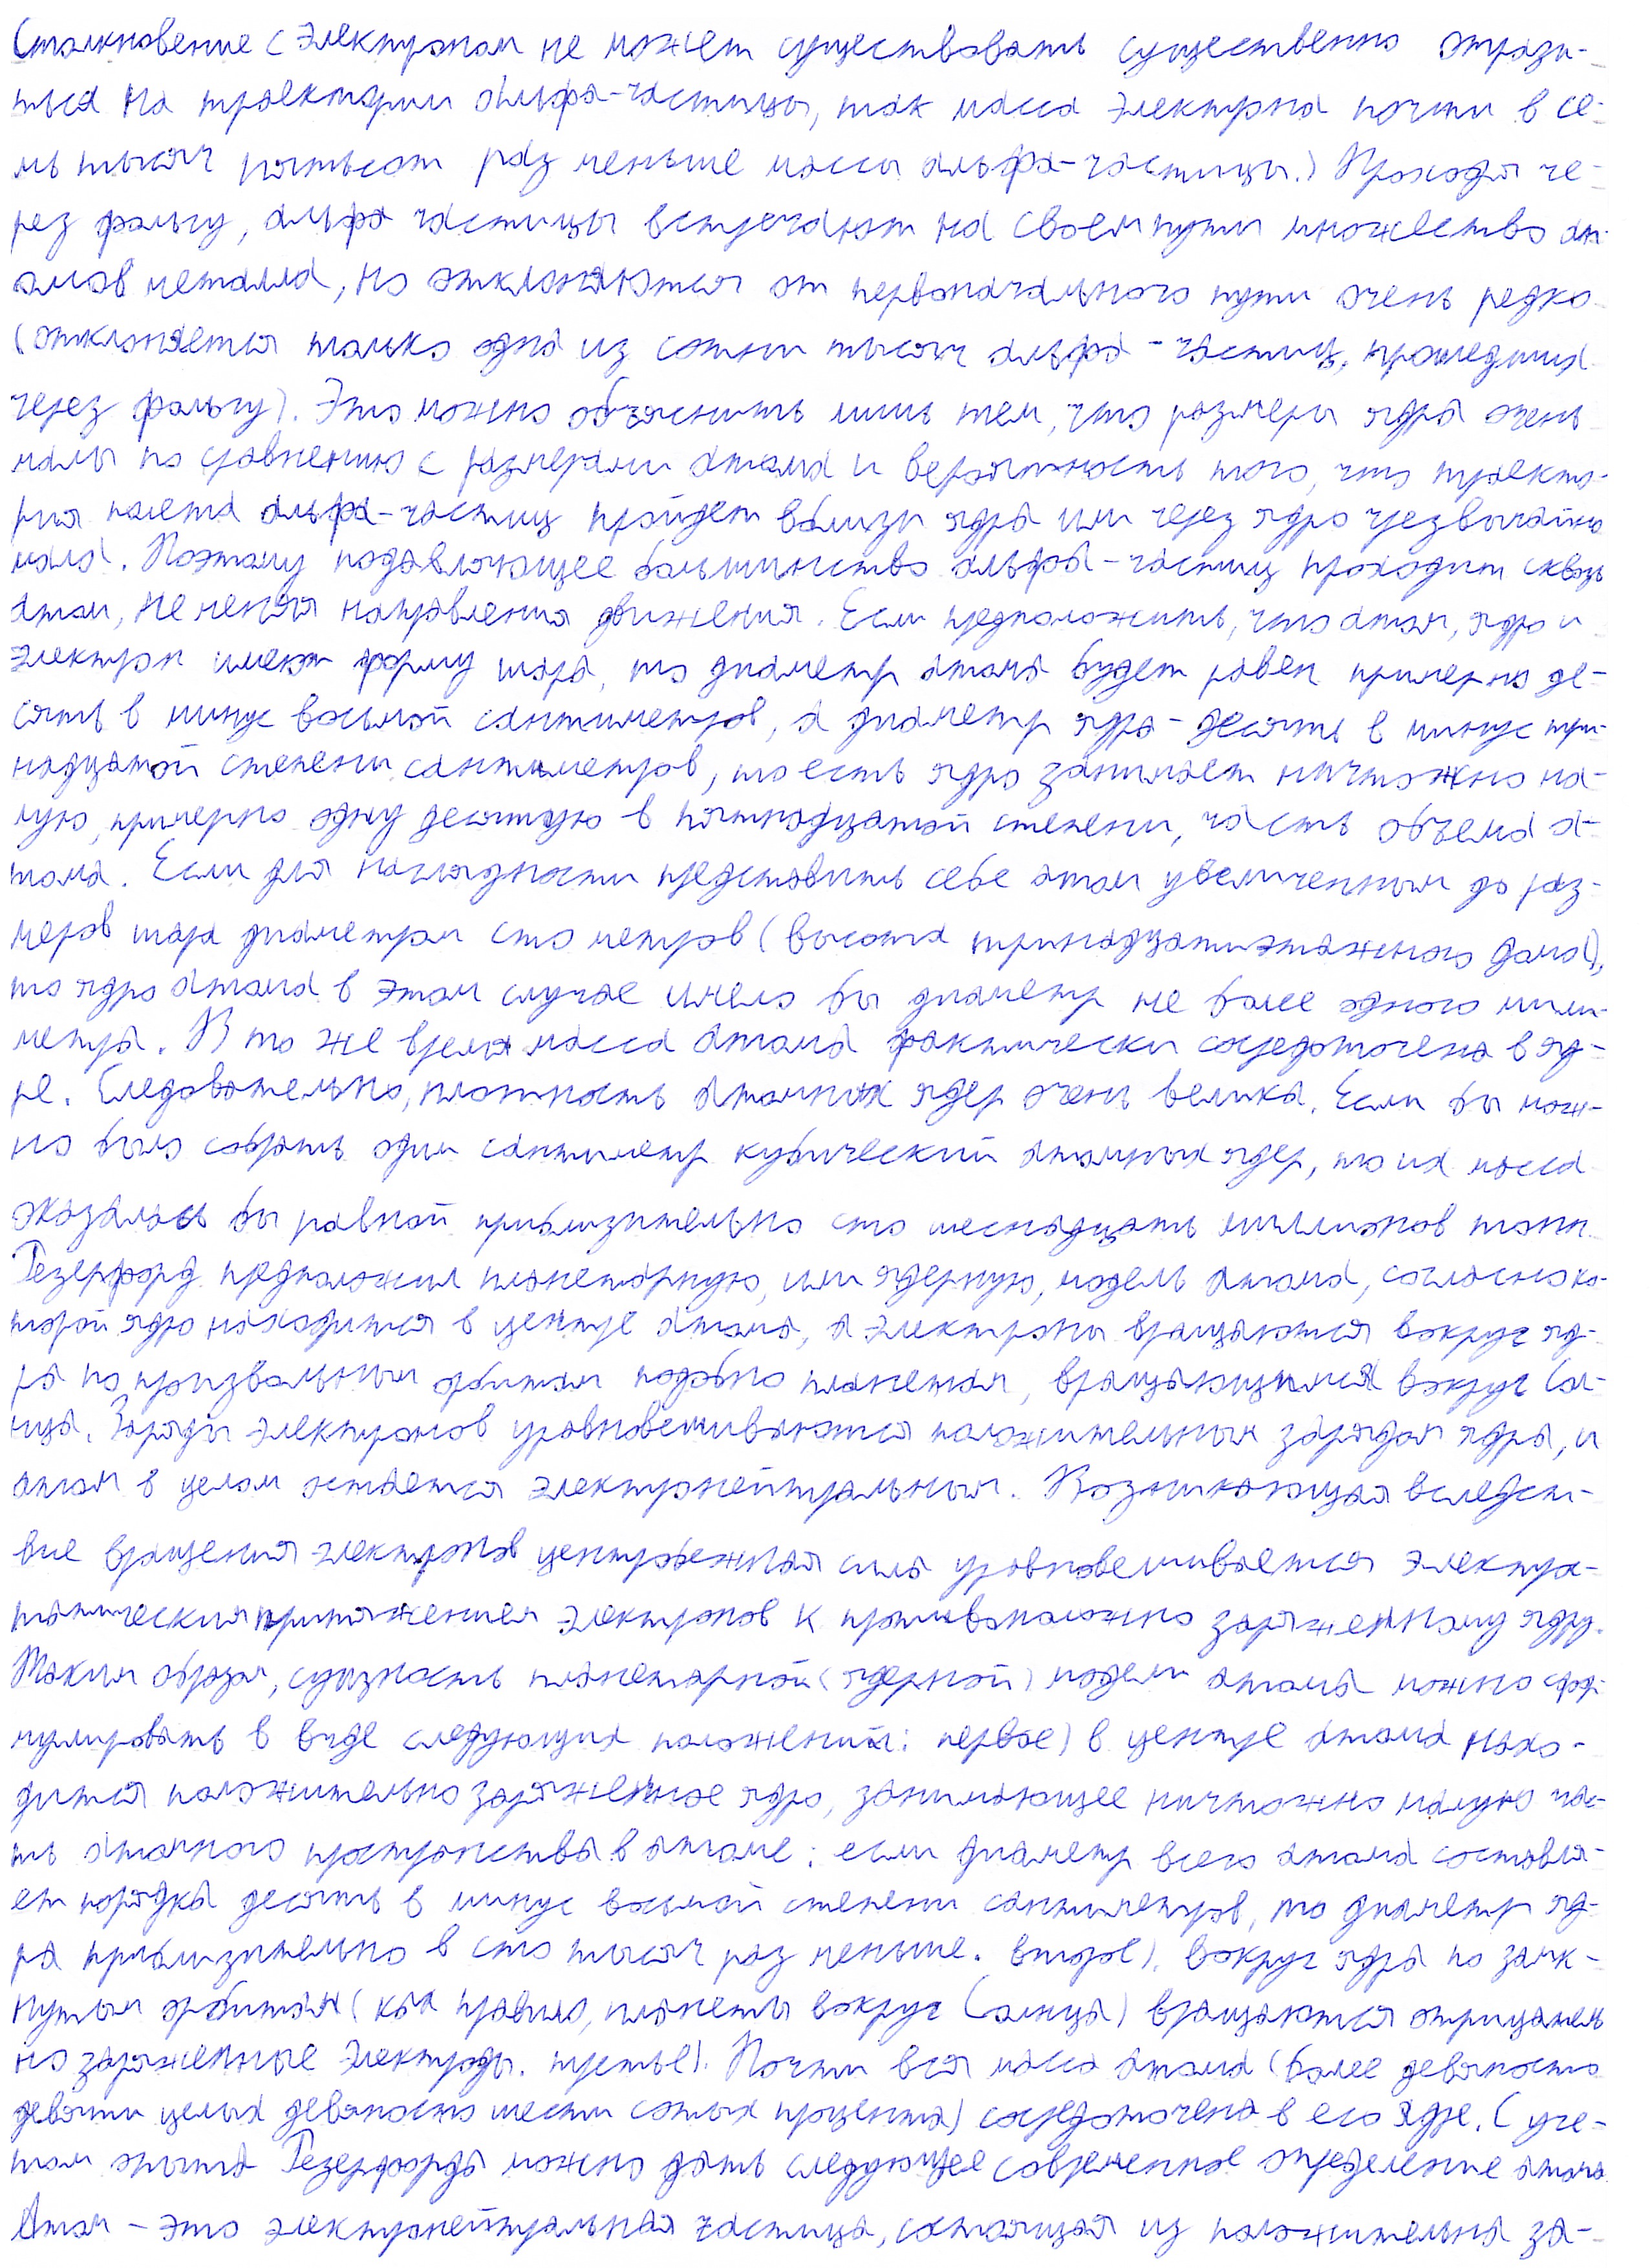 Столкновение с электроном не может существовать существенно отрази-
ться на траектории альфа-частицы, так масса электрона почти в се-
мь тысяч пятьсот раз меньше массы альфа-частицы.) Проходя че-
рез фольгу, альфа частицы встречают на своем пути множество ат-
омов металла, но отклоняются от первоначального пути очень редко
(отклоняется только одна из сотни тысяч альфа-частиц, прошедших
через фольгу). Это можно объяснить лишь тем, что размеры ядра очень
малы по сравнению с размерами атома и вероятность того, что траекто-
рия полета альфа-частиц пройдет вблизи ядра или через ядро чрезвычайно
мала. Поэтому подавляющее большинство альфа-частиц проходит сквозь
атом, не меняя направления движения. Если предположить, что атом, ядро и
электрон имеют форму шара, то диаметр атома будет равен примерно де-
сять в минус восьмой сантиметров, а диаметр ядра - десять в минус три-
надцатой степени сантиметров, то есть ядро занимает ничтожно ма-
лую, примерно одну десятую в пятнадцатой степени, часть объема а-
тома. Если для наглядности представить себе атом увеличенным до раз-
меров шара диаметром сто метров (высота тринадцатиэтажного дома),
то ядро атома в этом случае имело бы диаметр не более одного мили-
метра. В то же время масса атома фактически сосредоточена в яд-
ре. Следовательно, плотность атомных ядер очень велика. Если бы мож-
но было собрать один сантиметр кубический атомных ядер, то их масса
оказалась бы равной приблизительно сто шеснадцать миллионов тонн.
Резерфорд предположил планетарную, или ядерную, модель атома, согласно ко-
торой ядро находится в центре атома, а электроны вращаются вокруг яд-
ра по произвольным орбитам подобно планетам, вращающимися вокруг Сол-
нца. Заряды электронов уравновешиваются положительным зарядом ядра, и
атом в целом остается электронейтральным. Возникающая вследст-
вие вращения электронов центробежная сила уравновешивается электро-
татическим притяжением электронов к противоположно заряженному ядру.
Таким образом, сущность планетарной (ядерной) модели атома можно сфор-
мулировать в виде следующих положений: первое) в центре атома нахо-
дится положительно заряженное ядро, занимающее ничтожно малую час-
ть атомного пространства в атоме; если диаметр всего атома составля-
ет порядка десять в минус восьмой степени сантиметров, то диаметр яд-
ра приблизительно в сто тысяч раз меньше. второе). вокруг ядра по замк-
нутым орбитам (как правило, планеты вокруг Солнца) вращаются отрицатель
но заряженные электроды. третье). Почти вся масса атома (более девяносто
девяти целых девяносто шести сотых процента) сосредоточена в его ядре. С уче-
том опыта Резерфорда можно дать следующее современное определение атома.
Атом - это электронейтральная частица, состоящая из положительна за-